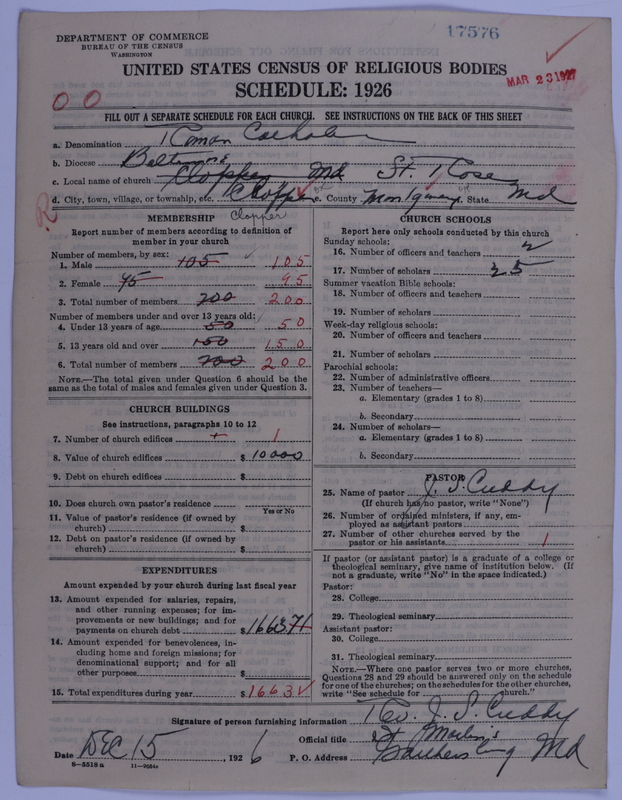 17576
DEPARTMENT OF COMMERCE
BUREAU OF THE CENSUS
WASHINGTON
MAR 23 1927
UNITED STATES CENSUS OF RELIGIOUS BODIES
SCHEDULE: 1926
00
FILL OUT A SEPARATE SCHEDULE FOR EACH CHURCH. SEE INSTRUCTIONS ON THE BACK OF THIS SHEET
a. Denomination Roman Catholic
b. Diocese Baltimore
c. Local name of church Clopper, Md St. Rose
d. City, town, village, or township, etc. Clopper e. County Montgomery State Md
Clopper
MEMBERSHIP
Report number of members according to definition of
member in your church
Number of members, by sex:
1. Male 105 105
2. Female 95 95
3. Total number of members 200 200
Number of members under and over 13 years old:
4. Under 13 years of age 50 50
5. 13 years old and over 150 150
6. Total number of members 200 200
NOTE.—The total given under Question 6 should be the
same as the total of males and females given under Question 3.
CHURCH BUILDINGS
See instructions, paragraphs 10 to 12
7. Number of church edifices 1
8. Value of church edifices $ 10000
9. Debt on church edifices $
10. Does church own pastor's residence
Yes or No
11. Value of pastor's residence (if owned by
church) $
12. Debt on pastor's residence (if owned by
church) $
EXPENDITURES
Amount expended by your church during last fiscal year
13. Amount expended for salaries, repairs,
and other running expenses; for im-
provements or new buildings; and for
payments on church debt $ 1663 71
14. Amount expended for benevolences, in-
cluding home and foreign missions; for
denominational support; and for all
other purposes $
15. Total expenditures during year $ 1663
CHURCH SCHOOLS
Report here only schools conducted by this church
Sunday schools:
16. Number of officers and teachers 2
17. Number of scholars 25
Summer vacation Bible schools:
18. Number of officers and teachers
19. Number of scholars
Week-day religious schools:
20. Number of officers and teachers
21. Number of scholars
Parochial schools:
22. Number of administrative officers
23. Number of teachers—
a. Elementary (grades 1 to 8)
b. Secondary
24. Number of scholars—
a. Elementary (grades 1 to 8)
b. Secondary
PASTOR
25. Name of pastor J. S. Cuddy
(If church has no pastor, write "None")
26. Number of ordained ministers, if any, em-
ployed as assistant pastors
27. Number of other churches served by the
pastor or his assistants 1
If pastor (or assistant pastor) is a graduate of a college or
theological seminary, give name of institution below. (If
not a graduate, write "No" in the space indicated.)
Pastor:
28. College
29. Theological seminary
Assistant pastor:
30. College
31. Theological seminary
NOTE.—Where one pastor serves two or more churches,
Questions 28 and 29 should be answered only on the schedule
for one of the churches; on the schedules for the other churches,
write "See schedule for church."
Signature of person furnishing information Rev. J. S. Cuddy
Official title St Martin's
Date DEC 15, 1926 P. O. Address Gaithersburg Md
8—5518 a 11—9024a